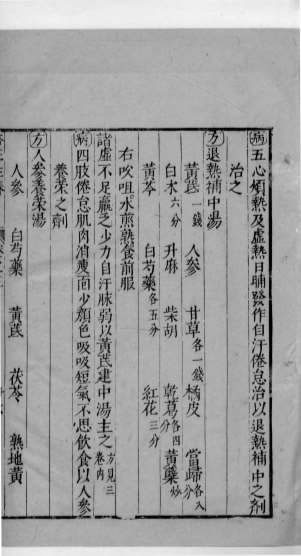 病五心煩熱及虛熱日晡發作自汗倦怠治以退熱補中之劑
治之
方退熱補中湯
黃芪一錢 人參 甘草各一錢 橘皮 當歸各八分
白朮六分 升麻 柴胡 乾葛各四分 黃蘗炒
黃芩 白芍藥各五分 紅花三分
右㕮咀水煎熱食前服
諸虛不足羸乏少力自汗脉弱以黃芪建中湯主之方見三卷內
病四肢倦怠肌肉消瘦面少顏色吸吸短氣不思飲食以人參
養榮之劑
方人參養榮湯
人參 白芍藥 黃芪 茯苓 熟地黃